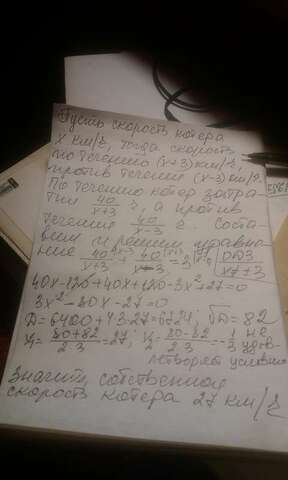 Пусть скорость катера
x км/ч, тогда скорость
по течению (x+3) км/ч
против течения (x-3) км/ч.
По течению катер затра-
тил 40/x+3 ч, а против
течения 40/x-3 ч. Соста-
вим и решим уравне
ние 40/x+3 + 40/x-3 = 3 ОДЗ x≠±3
40x-120+40x+120-3x²+27=0
3x²-80x-27=0
D=6400+4·3·27=6724; √D=82
x₁=80+82/2·3=27; x₂=80-82/2·3=-1/3 не
удов-
летворяет условию
Значит, собственная
скорость катера 27 км/ч